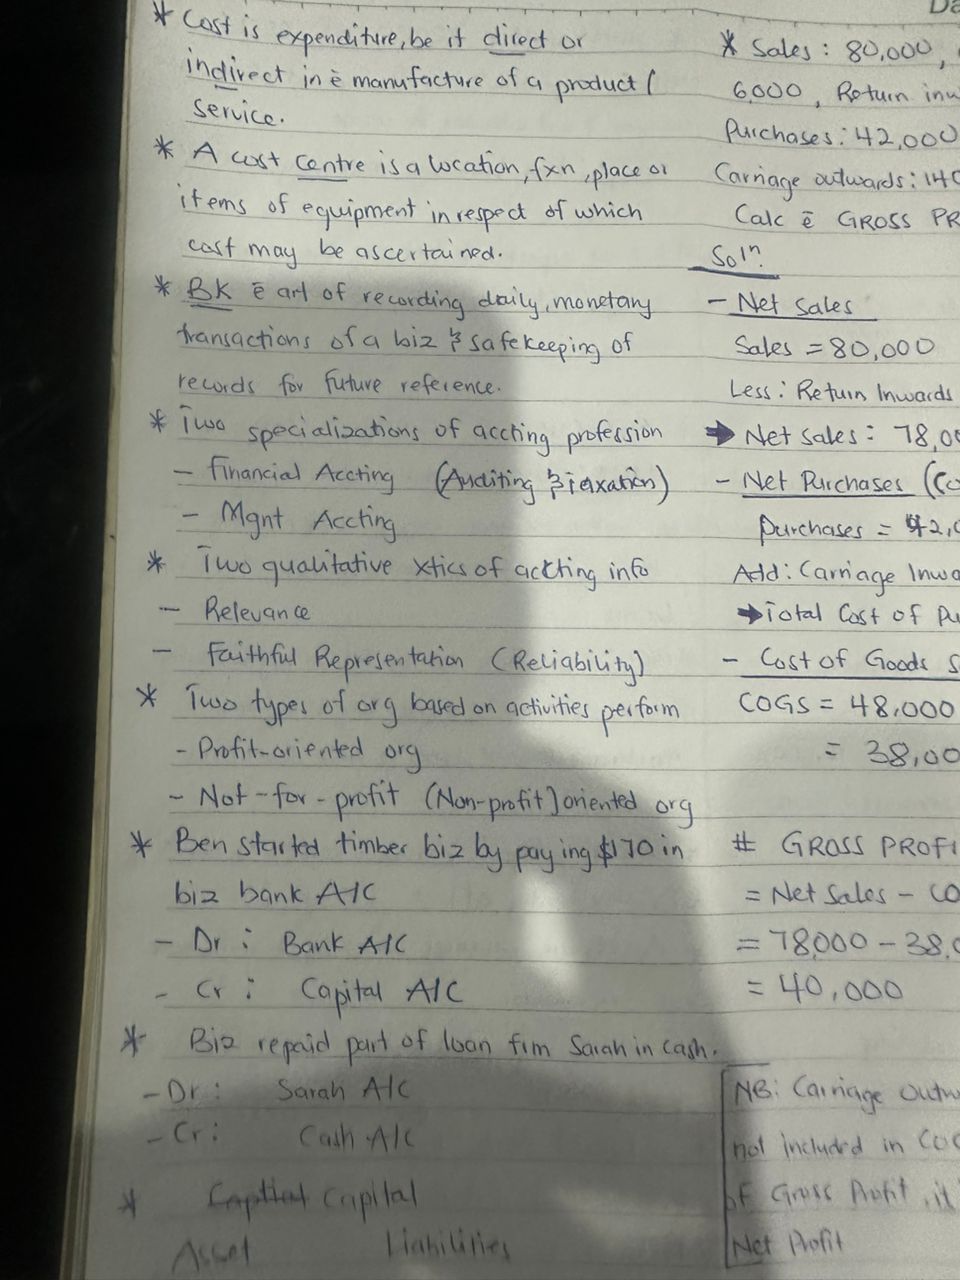 Da
* Cost is expenditure, be it direct or
indirect in ē manufacture of a product /
service.
* A cost centre is a location, fxn, place or
items of equipment in respect of which
cost may be ascertained.
* BK ē art of recording daily, monetary
transactions of a biz & safekeeping of
records for future reference.
* Two specializations of accting profession
- Financial Accting (Auditing & Taxation)
- Mgnt Accting
* Two qualitative xtics of accting info
- Relevance
- Faithful Representation (Reliability)
* Two types of org based on activities perform
- Profit-oriented org
- Not-for-profit (Non-profit) oriented org
* Ben started timber biz by paying $170 in
biz bank A/C
- Dr: Bank A/C
- Cr: Capital A/C
* Biz repaid part of loan frm Sarah in cash.
- Dr: Sarah A/C
- Cr: Cash A/C
* Capital
Asset Liabilities
* Sales: 80,000,
6,000, Return inw
Purchases: 42,000
Carriage outwards: 140
Calc ē GROSS PR
Soln.
- Net Sales
Sales = 80,000
Less: Return Inwards
→ Net sales: 78,00
- Net Purchases (Co
Purchases = 42,0
Add: Carriage Inwa
→ Total Cost of Pu
- Cost of Goods S
COGS = 48,000
= 38,00
# GROSS PROFI
= Net Sales - CO
= 78,000 - 38,0
= 40,000
NB: Carriage Outw
not included in COG
of Gross Profit, it
Net Profit